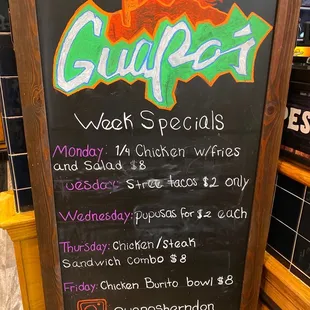 Guapo's
Week Specials
Monday: 1/4 Chicken w/fries
and Salad $8
uesday: Stree tacos $2 only
Wednesday: pupusas for $2 each
Thursday: Chicken/Steak
Sandwich combo $8
Friday: Chicken Burito bowl $8
guaposherndon
PES